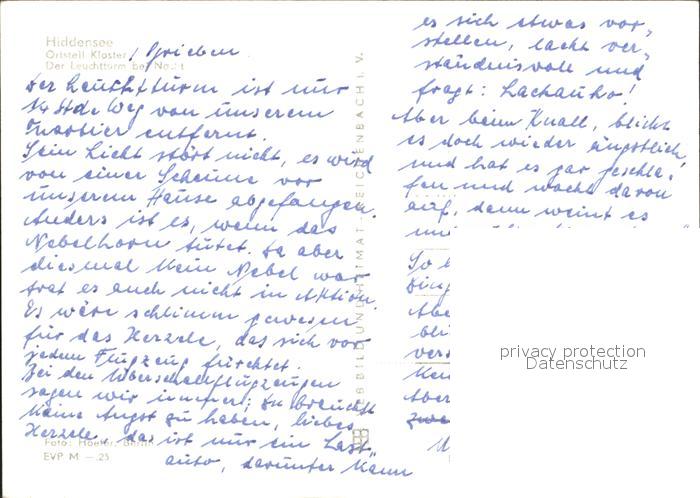 Hiddensee
Ortsteil Kloster / Grieben
Der Leuchtturm bei Nacht
Der Leuchtturm ist nur
1/4 Stde Weg von unserem
Quartier entfernt.
Sein Licht stört nicht, es wird
von einer Scheune vor
unserem Hause abgefangen.
Anders ist es, wenn das
Nebelhorn tutet. Da aber
diesmal kein Nebel war
trat es auch nicht in Aktion.
Es wäre schlimm gewesen
für das Herzele, das sich vor
jedem Flugzeug fürchtet.
Bei den Überschallflugzeugen
sagen wir immer: Du brauchst
keine Angst zu haben, liebes
Herzele, das ist nur ein Last-
auto, darunter kann
Berlin
EVP M —.25
BILD UND HEIMAT REICHENBACH I. V.
es sich etwas vor-
stellen, lacht ver-
ständnisvoll und
fragt: Lachauto!
Aber beim Knall, blickt
es doch wieder ängstlich,
und hat es gar geschla-
fen und wacht davon
auf, dann weint es
So
Ding
Abe
bli
vers
Ken
Aber
privacy protection
Datenschutz